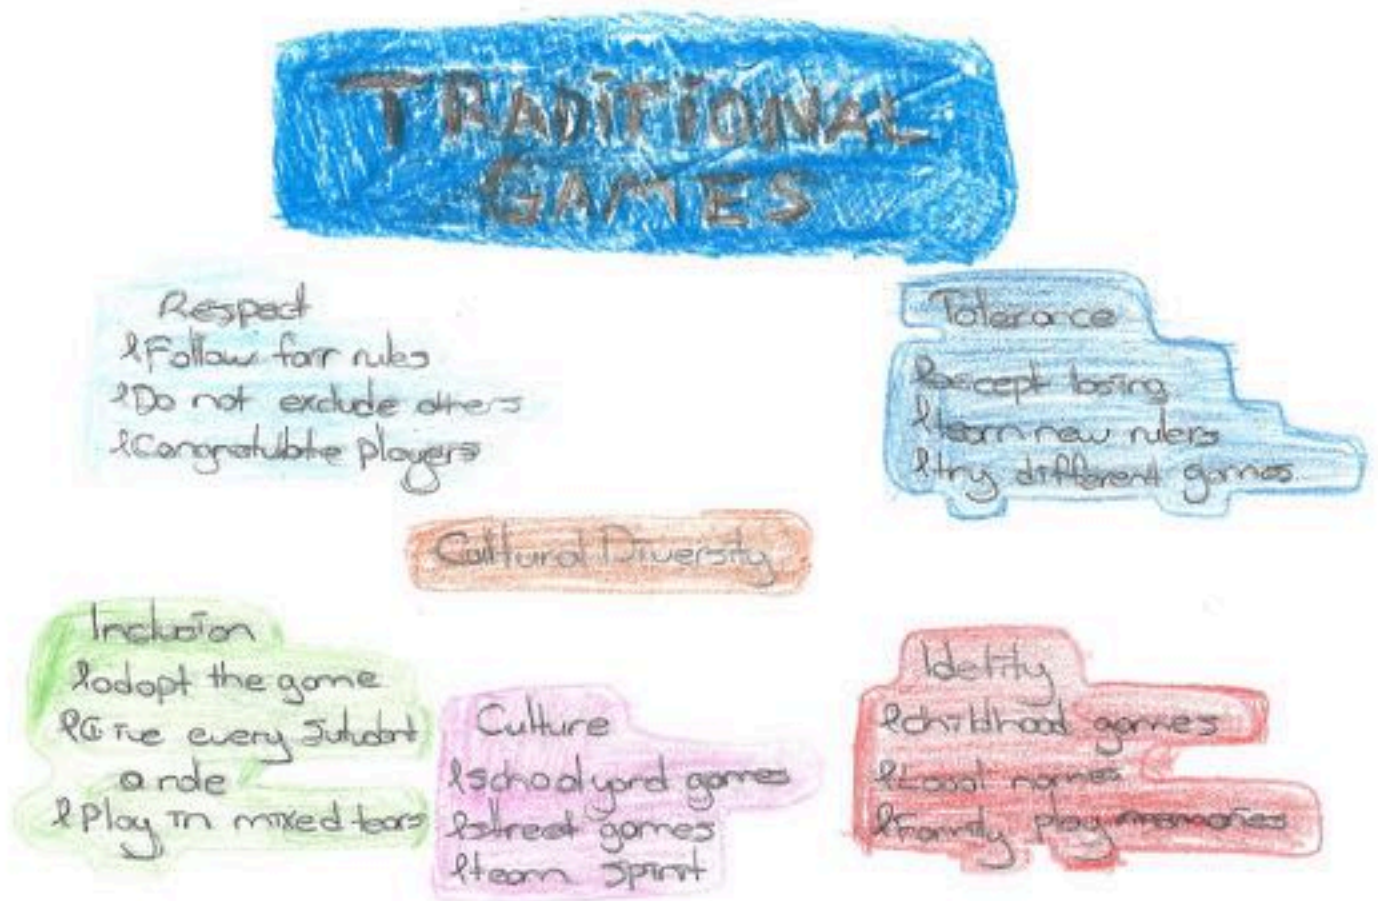 TRADiTiONAL
GAMES
Respect
Follow fair rules
Do not exclude others
Congratulate players
Tolerance
accept losing
learn new rulers
try different games
Cultural Diversity
Inclusion
adopt the game
Give every
a role
Play in mixed
Culture
schoolyard games
street games
team spirit
Idetity
childhood games
Local names
Family play memories